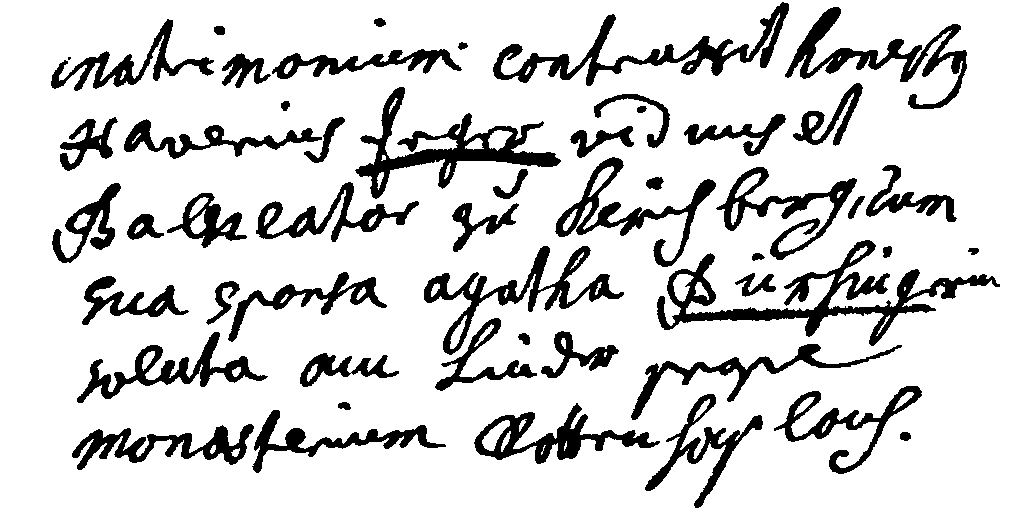 matrimonium contraxit honestus
Xaverius Jeger viduus et
Balneator zu Kirchberg, cum
sua sponsa agatha Dürhingerin
soluta am Linder prope
monasterium Rottenhaslach.